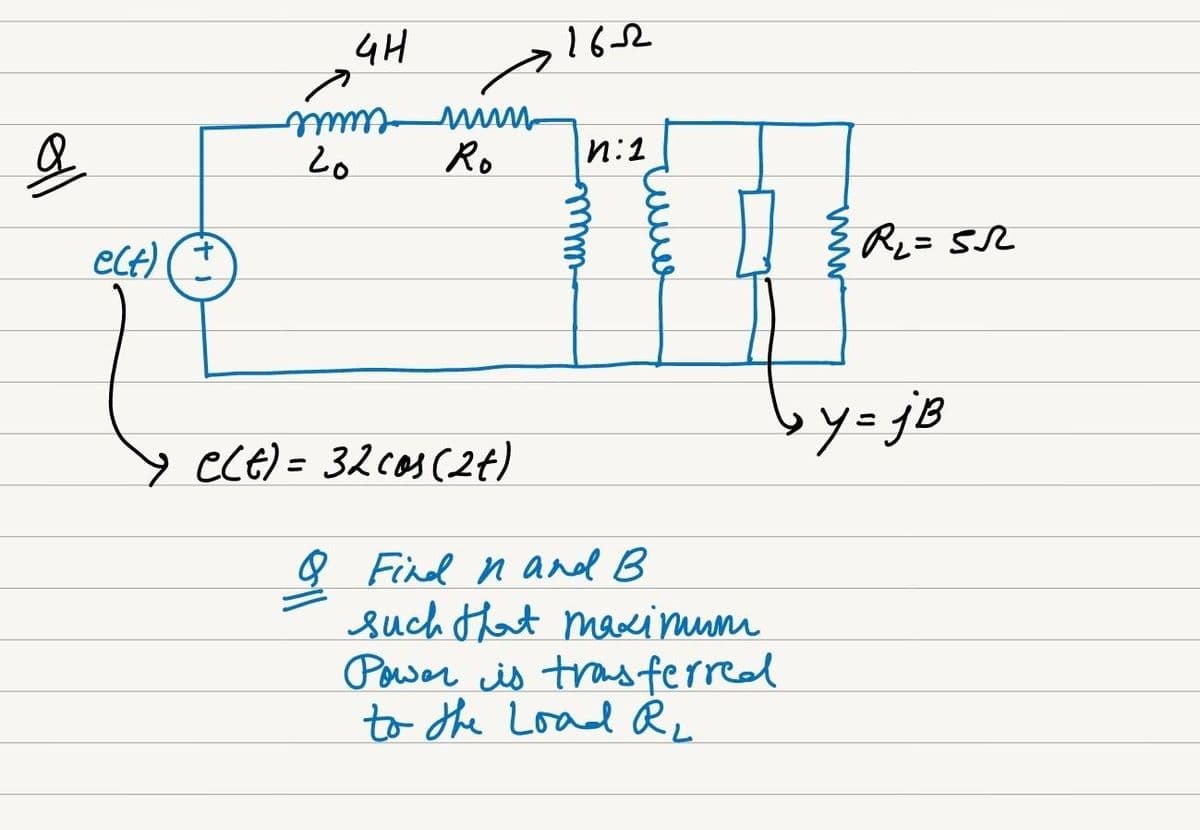 4H
16Ω
Q
L0
R0
n:1
e(t)
+
-
RL = 5Ω
y = jB
e(t) = 32 cos(2t)
Q Find n and B
such that maximum
Power is trasferred
to the Load RL